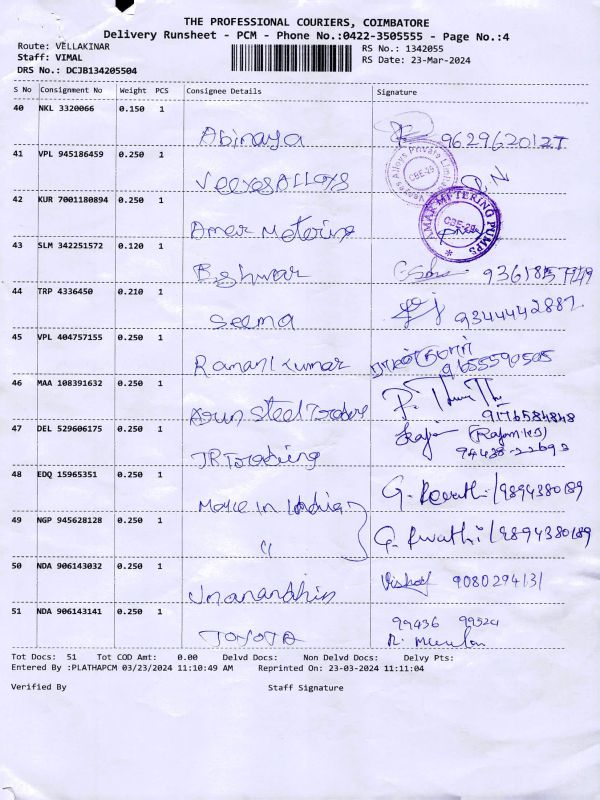 THE PROFESSIONAL COURIERS, COIMBATORE
Delivery Runsheet - PCM - Phone No.:0422-3505555 - Page No.:4
Route: VELLAKINAR
RS No.: 1342055
Staff: VIMAL
RS Date: 23-Mar-2024
DRS No.: DCJB134205504
S No Consignment No Weight PCS Consignee Details Signature
40 NKL 3320066 0.150 1
Abinaya 9629620127
41 VPL 945186459 0.250 1
Veexes Alloys
42 KUR 7001180894 0.250 1
Amar Metering
AMAR METERING PUMPS CBE-29
43 SLM 342251572 0.120 1
Eshwar
44 TRP 4336450 0.210 1
Seema 9344442887
45 VPL 404757155 0.250 1
Raman Kumar 9655590505
46 MAA 108391632 0.250 1
Arun Steel Traders 9176584848
47 DEL 529606175 0.250 1
JR Trading
48 EDQ 15965351 0.250 1
Make in India G. Revathi/9894380189
49 NGP 945628128 0.250 1
" G. Revathi/9894380189
50 NDA 906143032 0.250 1
Vishal 9080294131
51 NDA 906143141 0.250 1
99436 99524
TOYOTA
Tot Docs: 51 Tot COD Amt: 0.00 Delvd Docs: Non Delvd Docs: Delvy Pts:
Entered By :PLATHAPCM 03/23/2024 11:10:49 AM Reprinted On: 23-03-2024 11:11:04
Verified By Staff Signature